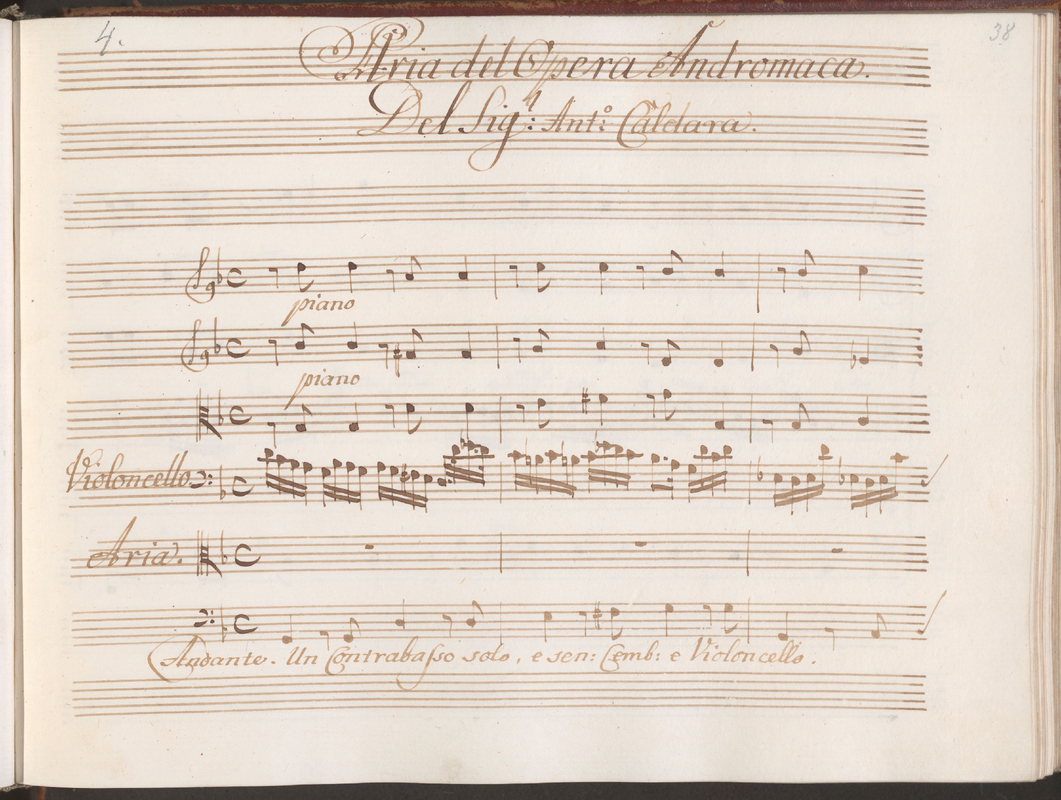 4.
38
Aria del Opera Andromaca.
Del Sigr: Anto: Caldara.
piano
piano
Violoncello
Aria.
Andante. Un Contrabasso solo, e sen: Cemb: e Violoncello.